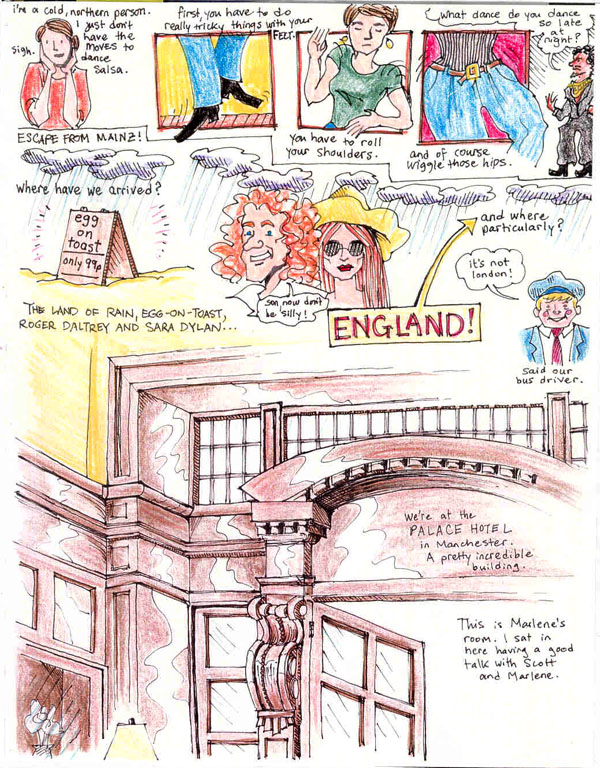 I'm a cold, northern person.
I just don't
have the
moves to
dance
salsa.
sigh.
first, you have to do
really tricky things with your
FEET.
you have to roll
your shoulders.
and of course
wiggle those hips.
What dance do you dance
so late
at
night?
ESCAPE FROM MAINZ!
where have we arrived?
egg
on
toast
only 99p
THE LAND OF RAIN, EGG-ON-TOAST,
ROGER DALTREY AND SARA DYLAN...
son, now don't
be silly!
ENGLAND!
and where
particularly?
it's not
london!
said our
bus driver.
We're at the
PALACE HOTEL
in Manchester.
A pretty incredible
building.
This is Marlene's
room. I sat in
here having a good
talk with Scott
and Marlene.